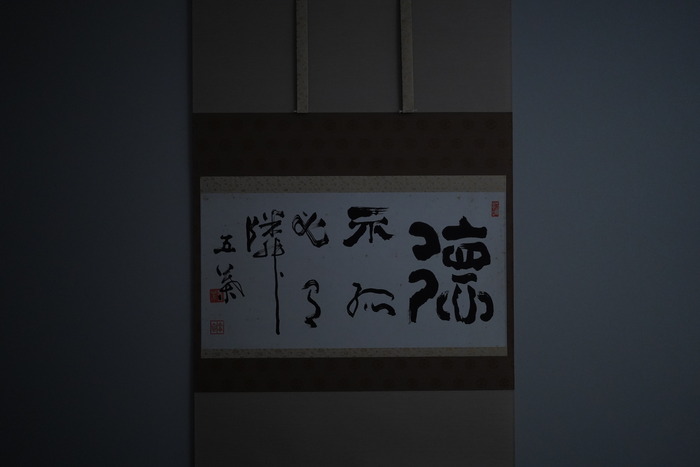 德
不孤
必有
隣
五巣